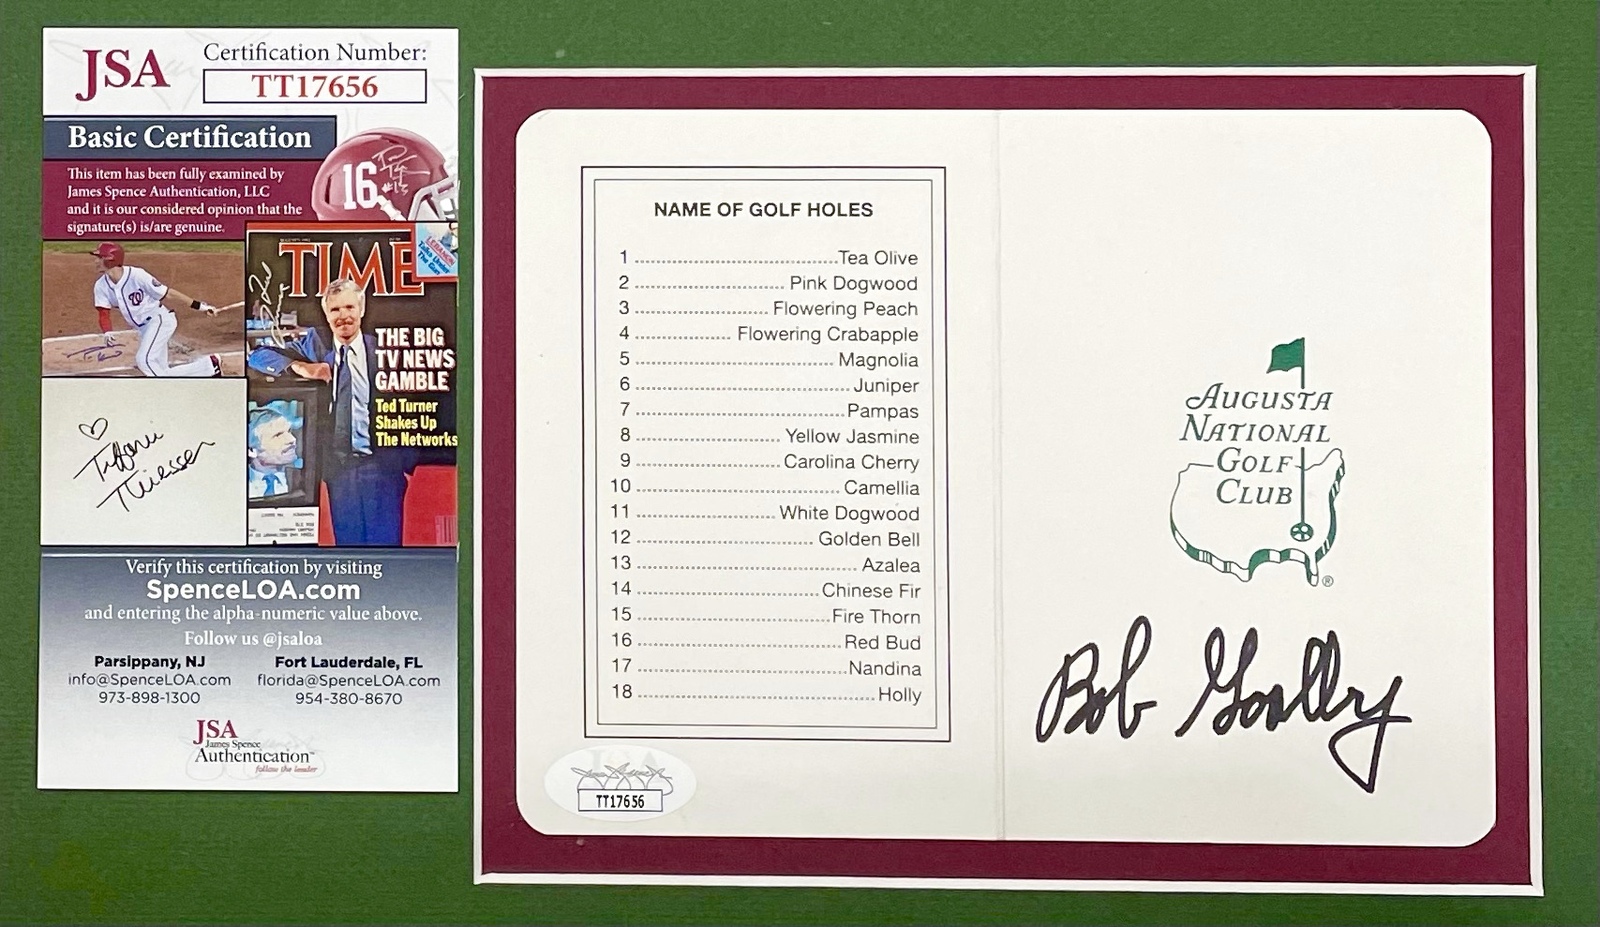 JSA
Certification Number:
TT17656
Basic Certification
This item has been fully examined by
James Spence Authentication, LLC
and it is our considered opinion that the
signature(s) is/are genuine.
16
TIME
THE BIG
TV NEWS
GAMBLE
Ted Turner
Shakes Up
The Networks
Tiffani
Thiessen
Verify this certification by visiting
SpenceLOA.com
and entering the alpha-numeric value above.
Follow us @jsaloa
Parsippany, NJ
info@SpenceLOA.com
973-898-1300
Fort Lauderdale, FL
florida@SpenceLOA.com
954-380-8670
JSA
James Spence
Authentication™
follow the leader
NAME OF GOLF HOLES
1 Tea Olive
2 Pink Dogwood
3 Flowering Peach
4 Flowering Crabapple
5 Magnolia
6 Juniper
7 Pampas
8 Yellow Jasmine
9 Carolina Cherry
10 Camellia
11 White Dogwood
12 Golden Bell
13 Azalea
14 Chinese Fir
15 Fire Thorn
16 Red Bud
17 Nandina
18 Holly
JSA
TT17656
AUGUSTA
NATIONAL
GOLF
CLUB
®
Bob Goalby